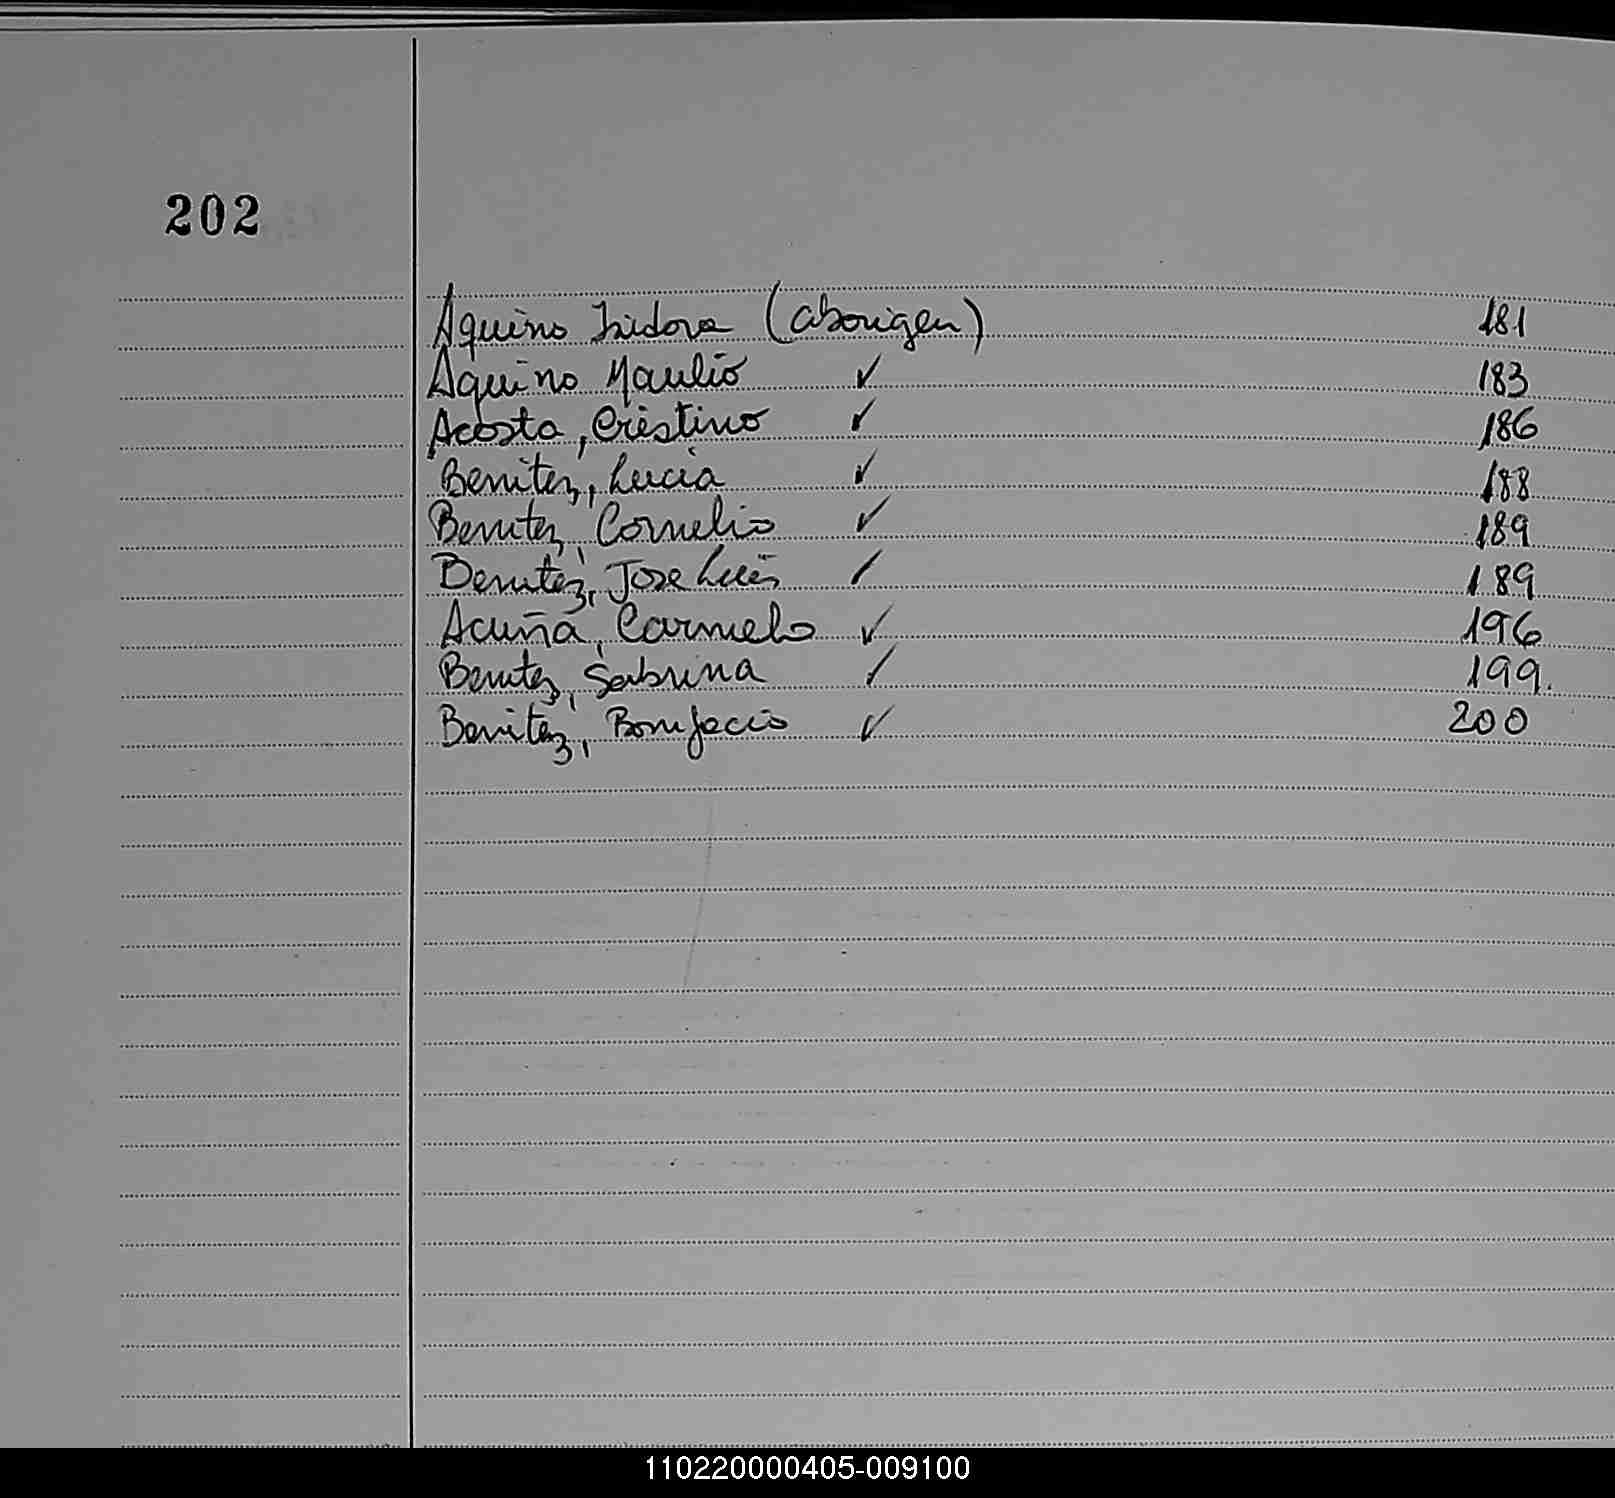 202
Aquino Isidora (aborigen) 181
Aquino Maulio ✓ 183
Acosta, Cristino ✓ 186
Benitez, Lucia ✓ 188
Benitez, Cornelio ✓ 189
Benitez, Jose Luis ✓ 189
Acuña, Carmelo ✓ 196
Benitez, Sabrina ✓ 199.
Benitez, Bonifacio ✓ 200
110220000405-009100